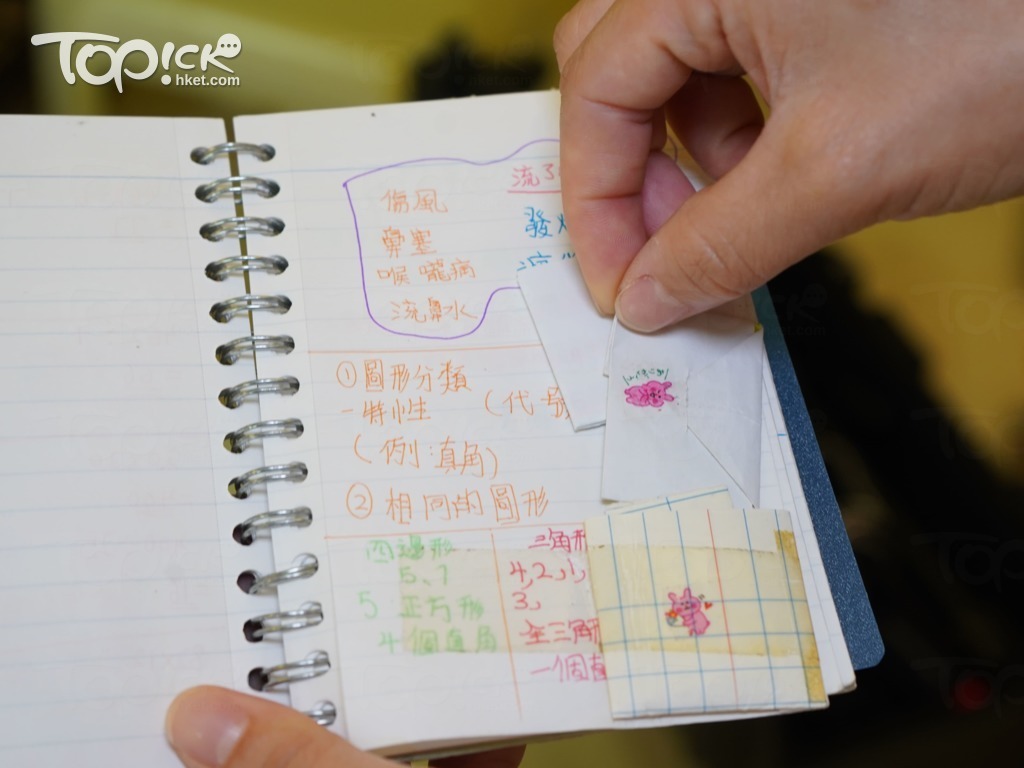 TOPICK
hket.com
傷風
鼻塞
喉嚨痛
流鼻水
流了
發
①圖形分類
-特性 (代號
(例:直角)
②相同的圖形
四邊形
5、1
5 正方形
4個直角
三角形
4,2,
3,
三角形
一個直